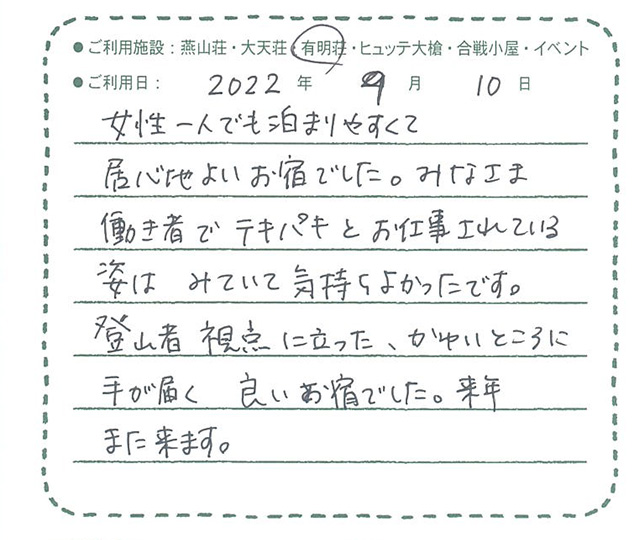 ●ご利用施設：燕山荘・大天荘・有明荘・ヒュッテ大槍・合戦小屋・イベント
●ご利用日： 2022 年 9 月 10 日
女性一人でも泊まりやすくて
居心地よいお宿でした。みなさま
働き者で テキパキとお仕事されている
姿は みていて気持ちよかったです。
登山者 視点に立った、かゆいところに
手が届く 良いお宿でした。来年
また来ます。